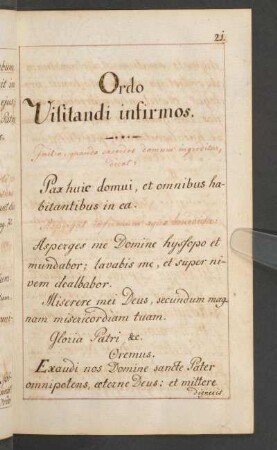 21
Ordo
Visitandi infirmos.
domum ingreditur,
dicat:
Pax huic domui, et omnibus ha,
bitantibus in ea.
Asperges me Domine hyssopo et
mundabor; lavabis me, et super ni,
vem dealbabor.
Miserere mei Deus, secundum mag,
nam misericordiam tuam.
Gloria Patri, &c.
Oremus.
Exaudi nos Domine sancte Pater
omnipotens, æterne Deus: et mittere
digneris